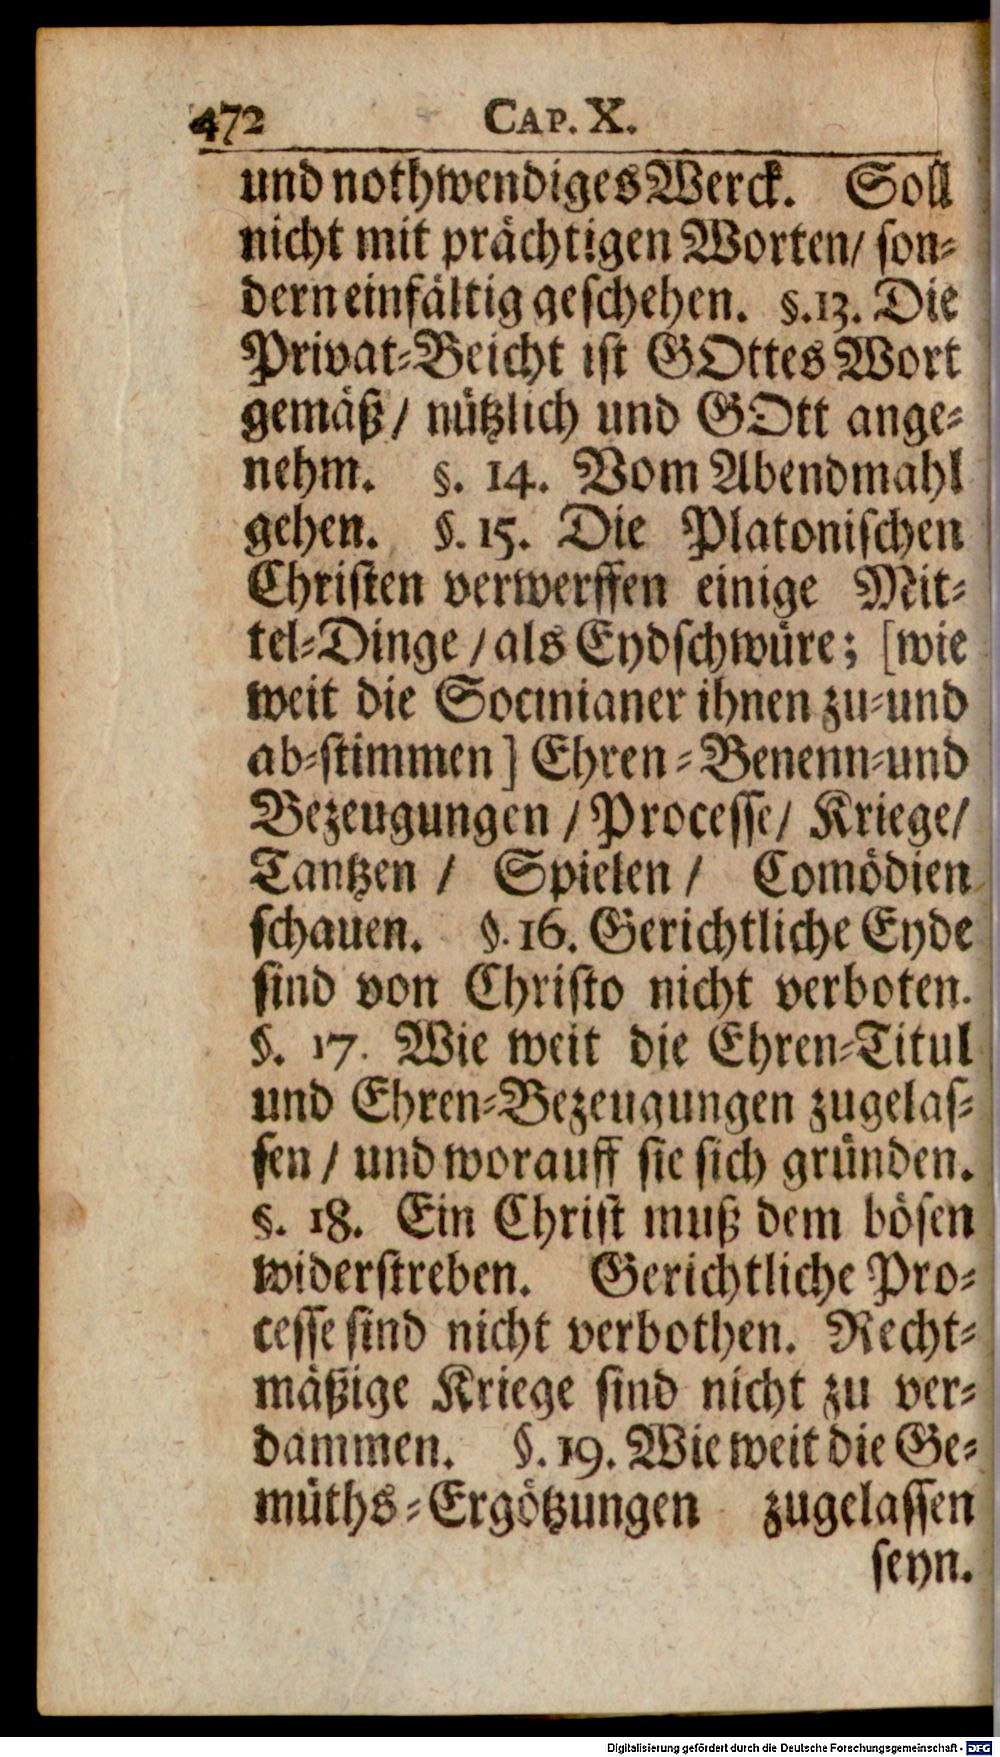 472 CAP. X.
und nothwendiges Werck. Soll
nicht mit prächtigen Worten/ son-
dern einfältig geschehen. §. 13. Die
Privat-Beicht ist GOttes Wort
gemäß/ nützlich und GOtt ange-
nehm. §. 14. Vom Abendmahl
gehen. §. 15. Die Platonischen
Christen verwerffen einige Mit-
tel-Dinge / als Eydschwüre; [wie
weit die Socinianer ihnen zu-und
ab-stimmen] Ehren-Benenn-und
Bezeugungen / Processe/ Kriege/
Tantzen / Spielen / Comödien
schauen. §. 16. Gerichtliche Eyde
sind von Christo nicht verboten.
§. 17. Wie weit die Ehren-Titul
und Ehren-Bezeugungen zugelas-
sen / und worauff sie sich gründen.
§. 18. Ein Christ muß dem bösen
widerstreben. Gerichtliche Pro-
cesse sind nicht verbothen. Recht-
mäßige Kriege sind nicht zu ver-
dammen. §. 19. Wie weit die Ge-
müths-Ergötzungen zugelassen
seyn.
Digitalisierung gefördert durch die Deutsche Forschungsgemeinschaft - DFG